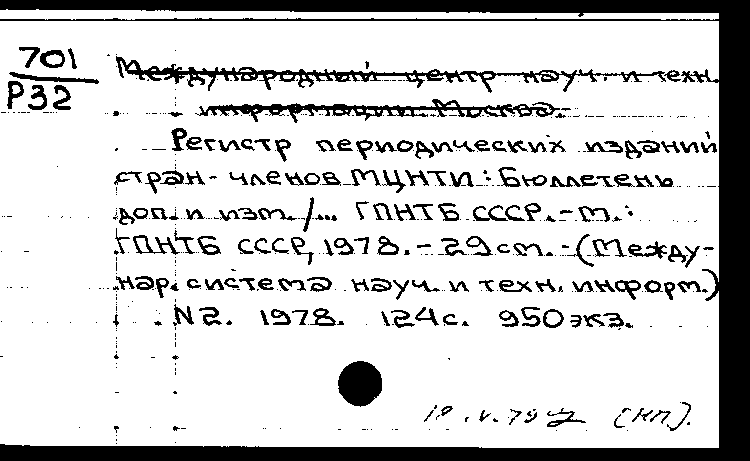 701
Р32
Международный центр науч. и техн.
информации. Москва.
Регистр периодических изданий
стран-членов МЦНТИ: Бюллетень
доп. и изм. /... ГПНТБ СССР. - М.:
ГПНТБ СССР, 1978. - 29 см. - (Между-
нар. система науч. и техн. информ.)
N2. 1978. 124с. 950 экз.
(НП).